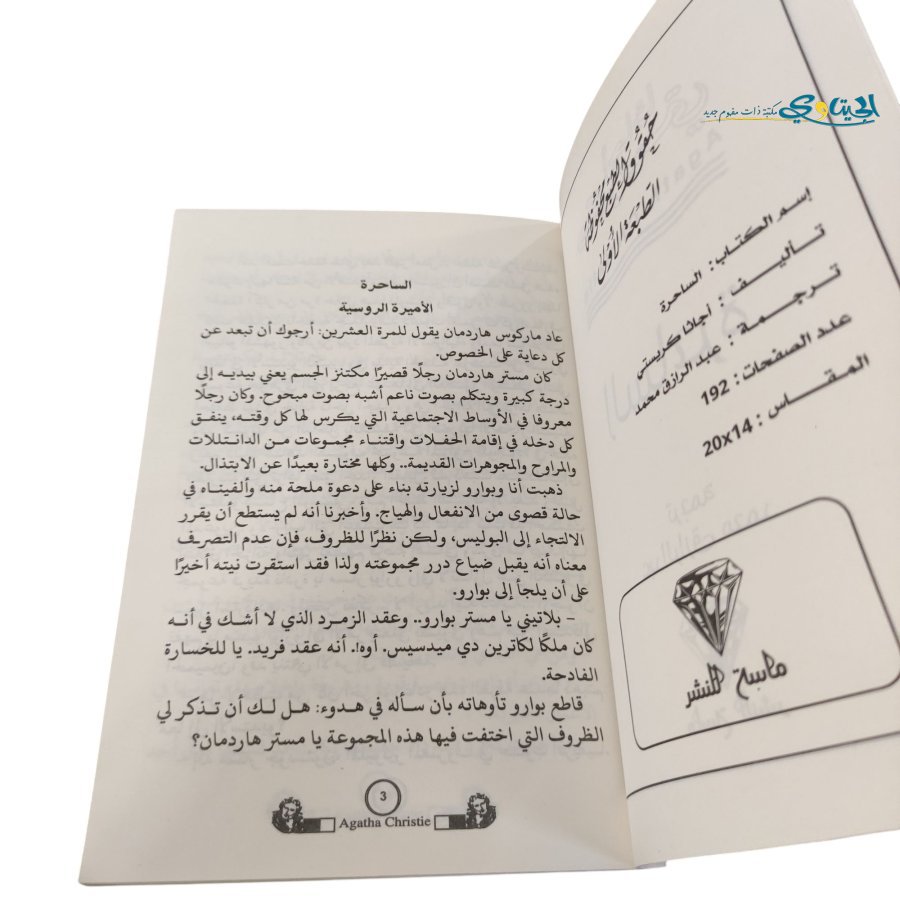 الحيتاوي
مكتبة ذات مفهوم جديد
حقوق الطبع محفوظة
الطبعة الأولى
إسم الكتاب: الساحرة
تأليف: أجاثا كريستي
ترجمة: عبد الرازق محمد
عدد الصفحات: 192
المقاس: 14×20
ماسة للنشر
الساحرة
الأميرة الروسية
عاد ماركوس هاردمان يقول للمرة العشرين: أرجوك أن تبعد عن
كل دعاية على الخصوص.
كان مستر هاردمان رجلًا قصيرًا مكتنز الجسم يعني بيديه إلى
درجة كبيرة ويتكلم بصوت ناعم أشبه بصوت مبحوح. وكان رجلًا
معروفا في الأوساط الاجتماعية التي يكرس لها كل وقته، ينفق
كل دخله في إقامة الحفلات واقتناء مجموعات من الدانتللات
والمراوح والمجوهرات القديمة.. وكلها مختارة بعيدًا عن الابتذال.
ذهبت أنا وبوارو لزيارته بناء على دعوة ملحة منه وألفيناه في
حالة قصوى من الانفعال والهياج. وأخبرنا أنه لم يستطع أن يقرر
الالتجاء إلى البوليس، ولكن نظرًا للظروف، فإن عدم التصرف
معناه أنه يقبل ضياع درر مجموعته ولذا فقد استقرت نيته أخيرًا
على أن يلجأ إلى بوارو.
- بلاتيني يا مستر بوارو.. وعقد الزمرد الذي لا أشك في أنه
كان ملكًا لكاترين دي ميدسيس. أوه!. أنه عقد فريد. يا للخسارة
الفادحة.
قاطع بوارو تأوهاته بأن سأله في هدوء: هل لك أن تذكر لي
الظروف التي اختفت فيها هذه المجموعة يا مستر هاردمان؟
3
Agatha Christie